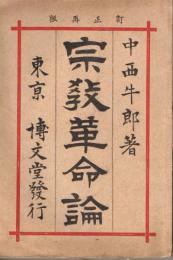 訂正再版
中西牛郎著
宗教革命論
東京 博文堂發行